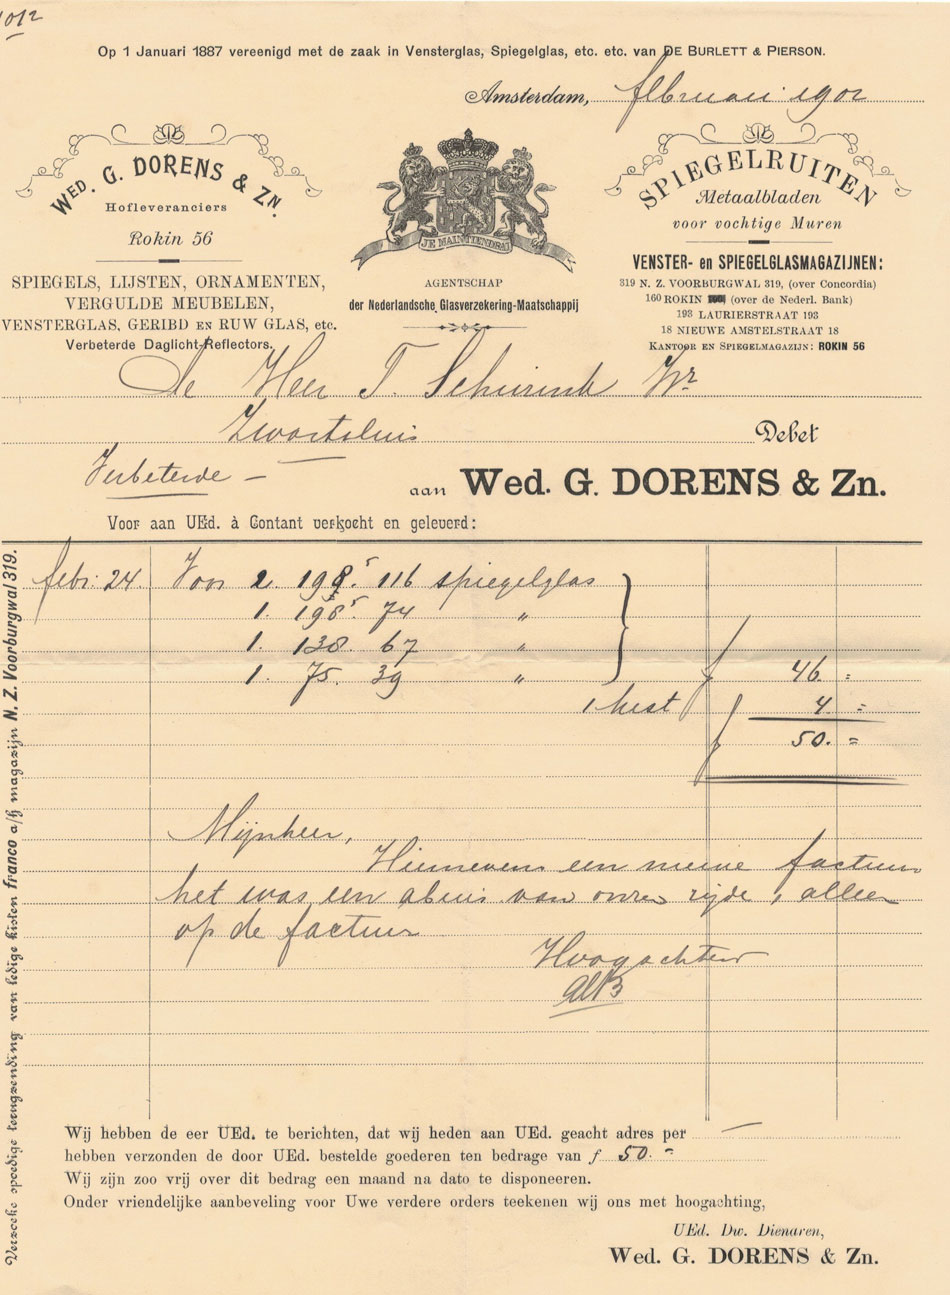 1012
Op 1 Januari 1887 vereenigd met de zaak in Vensterglas, Spiegelglas, etc. etc. van DE BURLETT & PIERSON.
Amsterdam, februari 1902
WED. G. DORENS & ZN.
Hofleveranciers
Rokin 56
SPIEGELS, LIJSTEN, ORNAMENTEN,
VERGULDE MEUBELEN,
VENSTERGLAS, GERIBD EN RUW GLAS, etc.
Verbeterde Daglicht-Reflectors.
JE MAINTIENDRAI
AGENTSCHAP
der Nederlandsche Glasverzekering-Maatschappij
SPIEGELRUITEN
Metaalbladen
voor vochtige Muren
VENSTER- en SPIEGELGLASMAGAZIJNEN:
319 N. Z. VOORBURGWAL 319, (over Concordia)
160 ROKIN (over de Nederl. Bank)
193 LAURIERSTRAAT 193
18 NIEUWE AMSTELSTRAAT 18
KANTOOR EN SPIEGELMAGAZIJN: ROKIN 56
De Heer T. Schurink Jr
Zwartsluis Debet
Verbeterde -
aan Wed. G. DORENS & Zn.
Voor aan UEd. à Contant verkocht en geleverd:
febr. 24. Voor 2 198.5 116 spiegelglas
1. 198.5 74 "
1. 138. 67 "
1. 75. 39 " f 46. =
1 kist 4. =
f 50. =
Mijnheer,
Hiernevens een nieuwe factuur
het was een abuis van onze zijde, alleen
op de factuur
Hoogachtend
Wij hebben de eer UEd. te berichten, dat wij heden aan UEd. geacht adres per —
hebben verzonden de door UEd. bestelde goederen ten bedrage van f 50. =
Wij zijn zoo vrij over dit bedrag een maand na dato te disponeeren.
Onder vriendelijke aanbeveling voor Uwe verdere orders teekenen wij ons met hoogachting,
UEd. Dw. Dienaren,
Wed. G. DORENS & Zn.
Verzoeke spoedige terugzending van ledige kisten franco a/h magazijn N. Z. Voorburgwal 319.